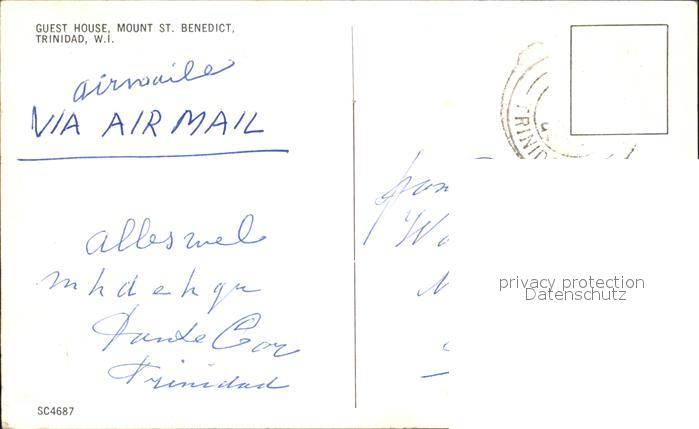 GUEST HOUSE, MOUNT ST. BENEDICT,
TRINIDAD, W.I.
airmaile
VIA AIR MAIL
alles wel
m h d e h gr
Tante Cor
Trinidad
SC4687
TRINID
privacy protection
Datenschutz